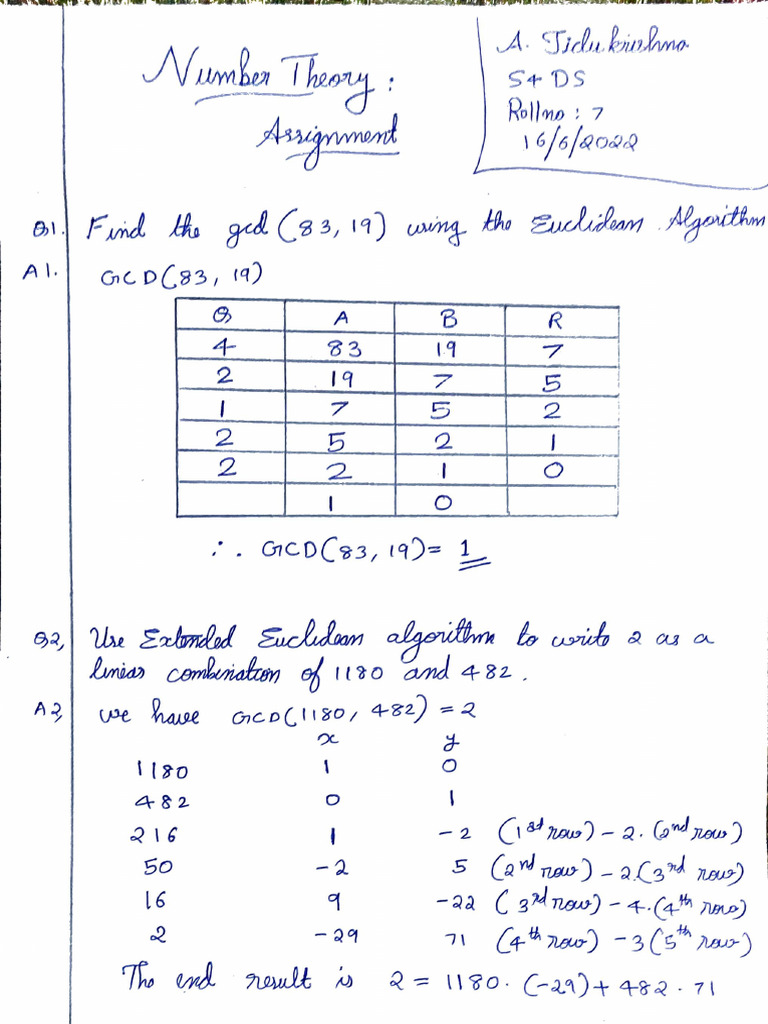 Number Theory :
Assignment
A. Jidukrishna
S4 DS
Rollno : 7
16/6/2022
Q1. Find the gcd (83, 19) using the Euclidean Algorithm
A1. GCD(83, 19)
Q A B R
4 83 19 7
2 19 7 5
1 7 5 2
2 5 2 1
2 2 1 0
1 0
∴ GCD(83, 19) = 1
Q2, Use Extended Euclidean algorithm to write 2 as a
linear combination of 1180 and 482.
A2, we have GCD(1180, 482) = 2
x y
1180 1 0
482 0 1
216 1 -2 (1st row) - 2. (2nd row)
50 -2 5 (2nd row) - 2.(3rd row)
16 9 -22 (3rd row) - 4.(4th row)
2 -29 71 (4th row) - 3(5th row)
The end result is 2 = 1180 · (-29) + 482 · 71